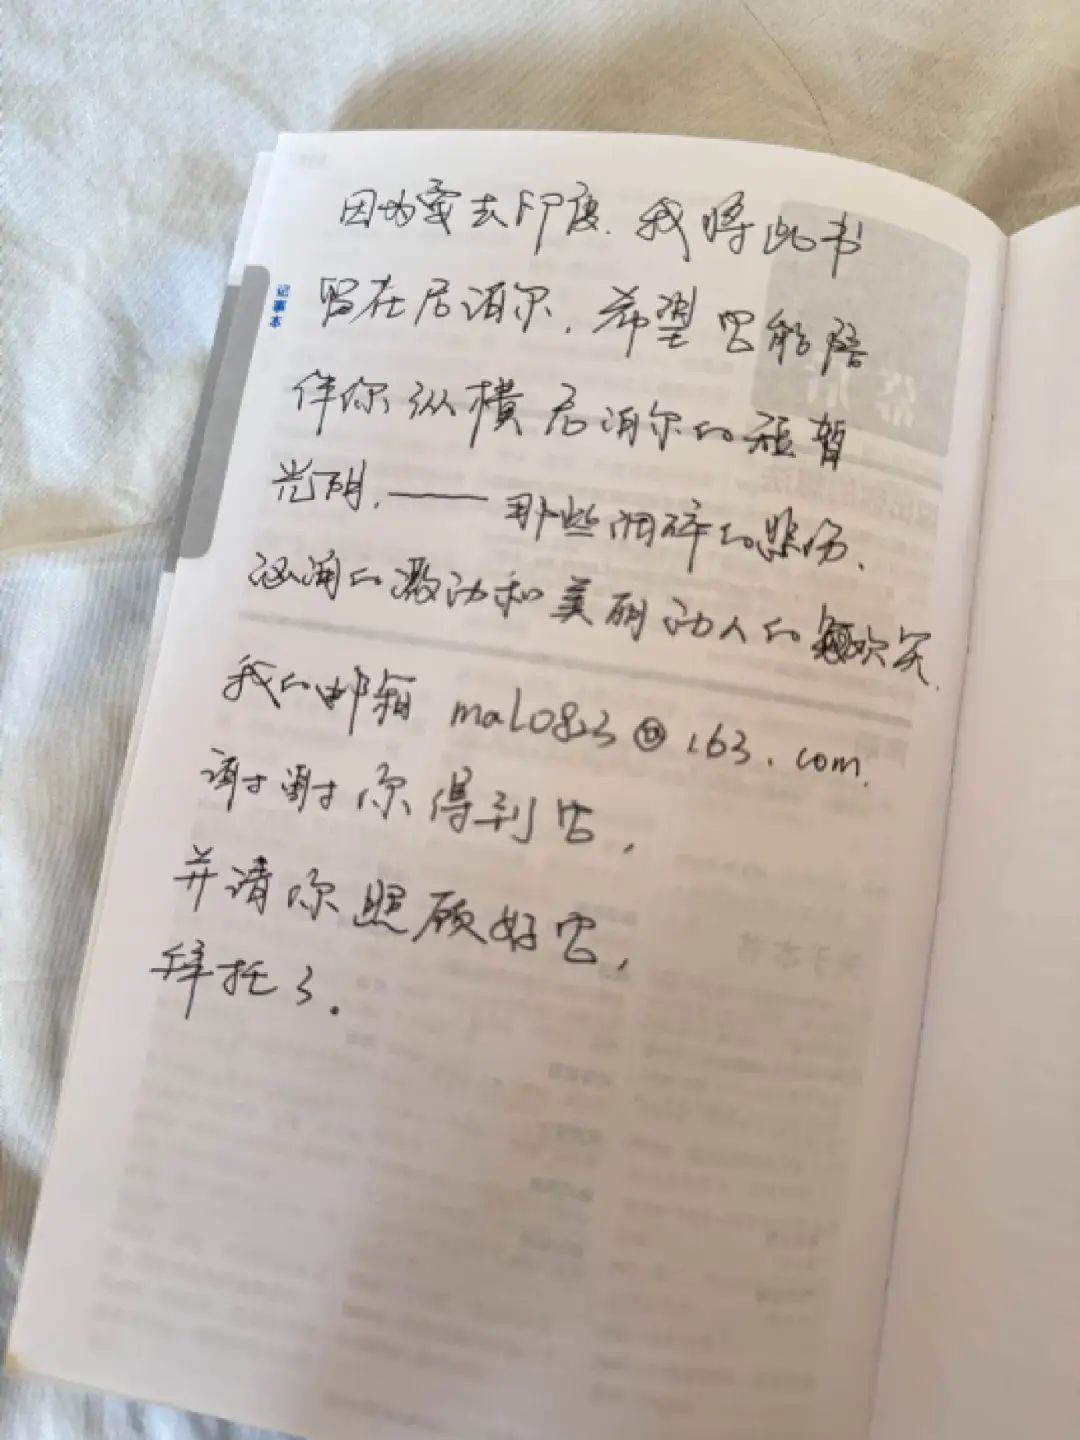 因为要去印度.我将此书
留在尼泊尔,希望它能陪
伴你纵横尼泊尔的短暂
光阴.——那些细碎的悲伤、
汹涌的激动和美丽动人的欢笑.
我的邮箱 mal0823@163.com.
谢谢你得到它,
并请你照顾好它,
拜托了.
记事本